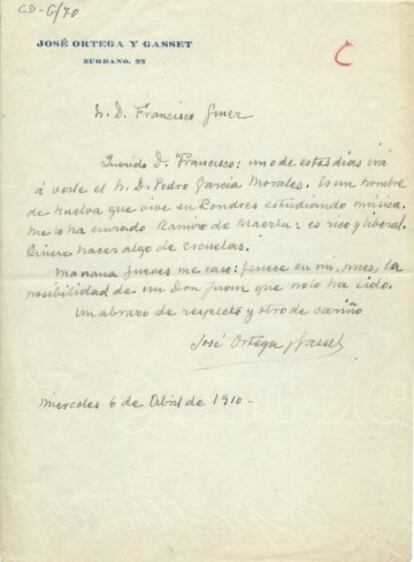 CD-G/70
JOSÉ ORTEGA Y GASSET
ZURBANO, 22
C
Sr. D. Francisco Giner
Querido D. Francisco: uno de estos días irá
á verle el Sr. D. Pedro García Morales. Es un hombre
de Huelva que vive en Londres estudiando música.
Me lo ha enviado Ramiro de Maeztu: es rico y liberal.
Quiere hacer algo de escuelas.
Mañana jueves me caso: fenece en mi, pues, la
posibilidad de un Don Juan que no lo ha sido.
Un abrazo de respeto y otro de cariño
José Ortega y Gasset
Miercoles 6 de Abril de 1910-